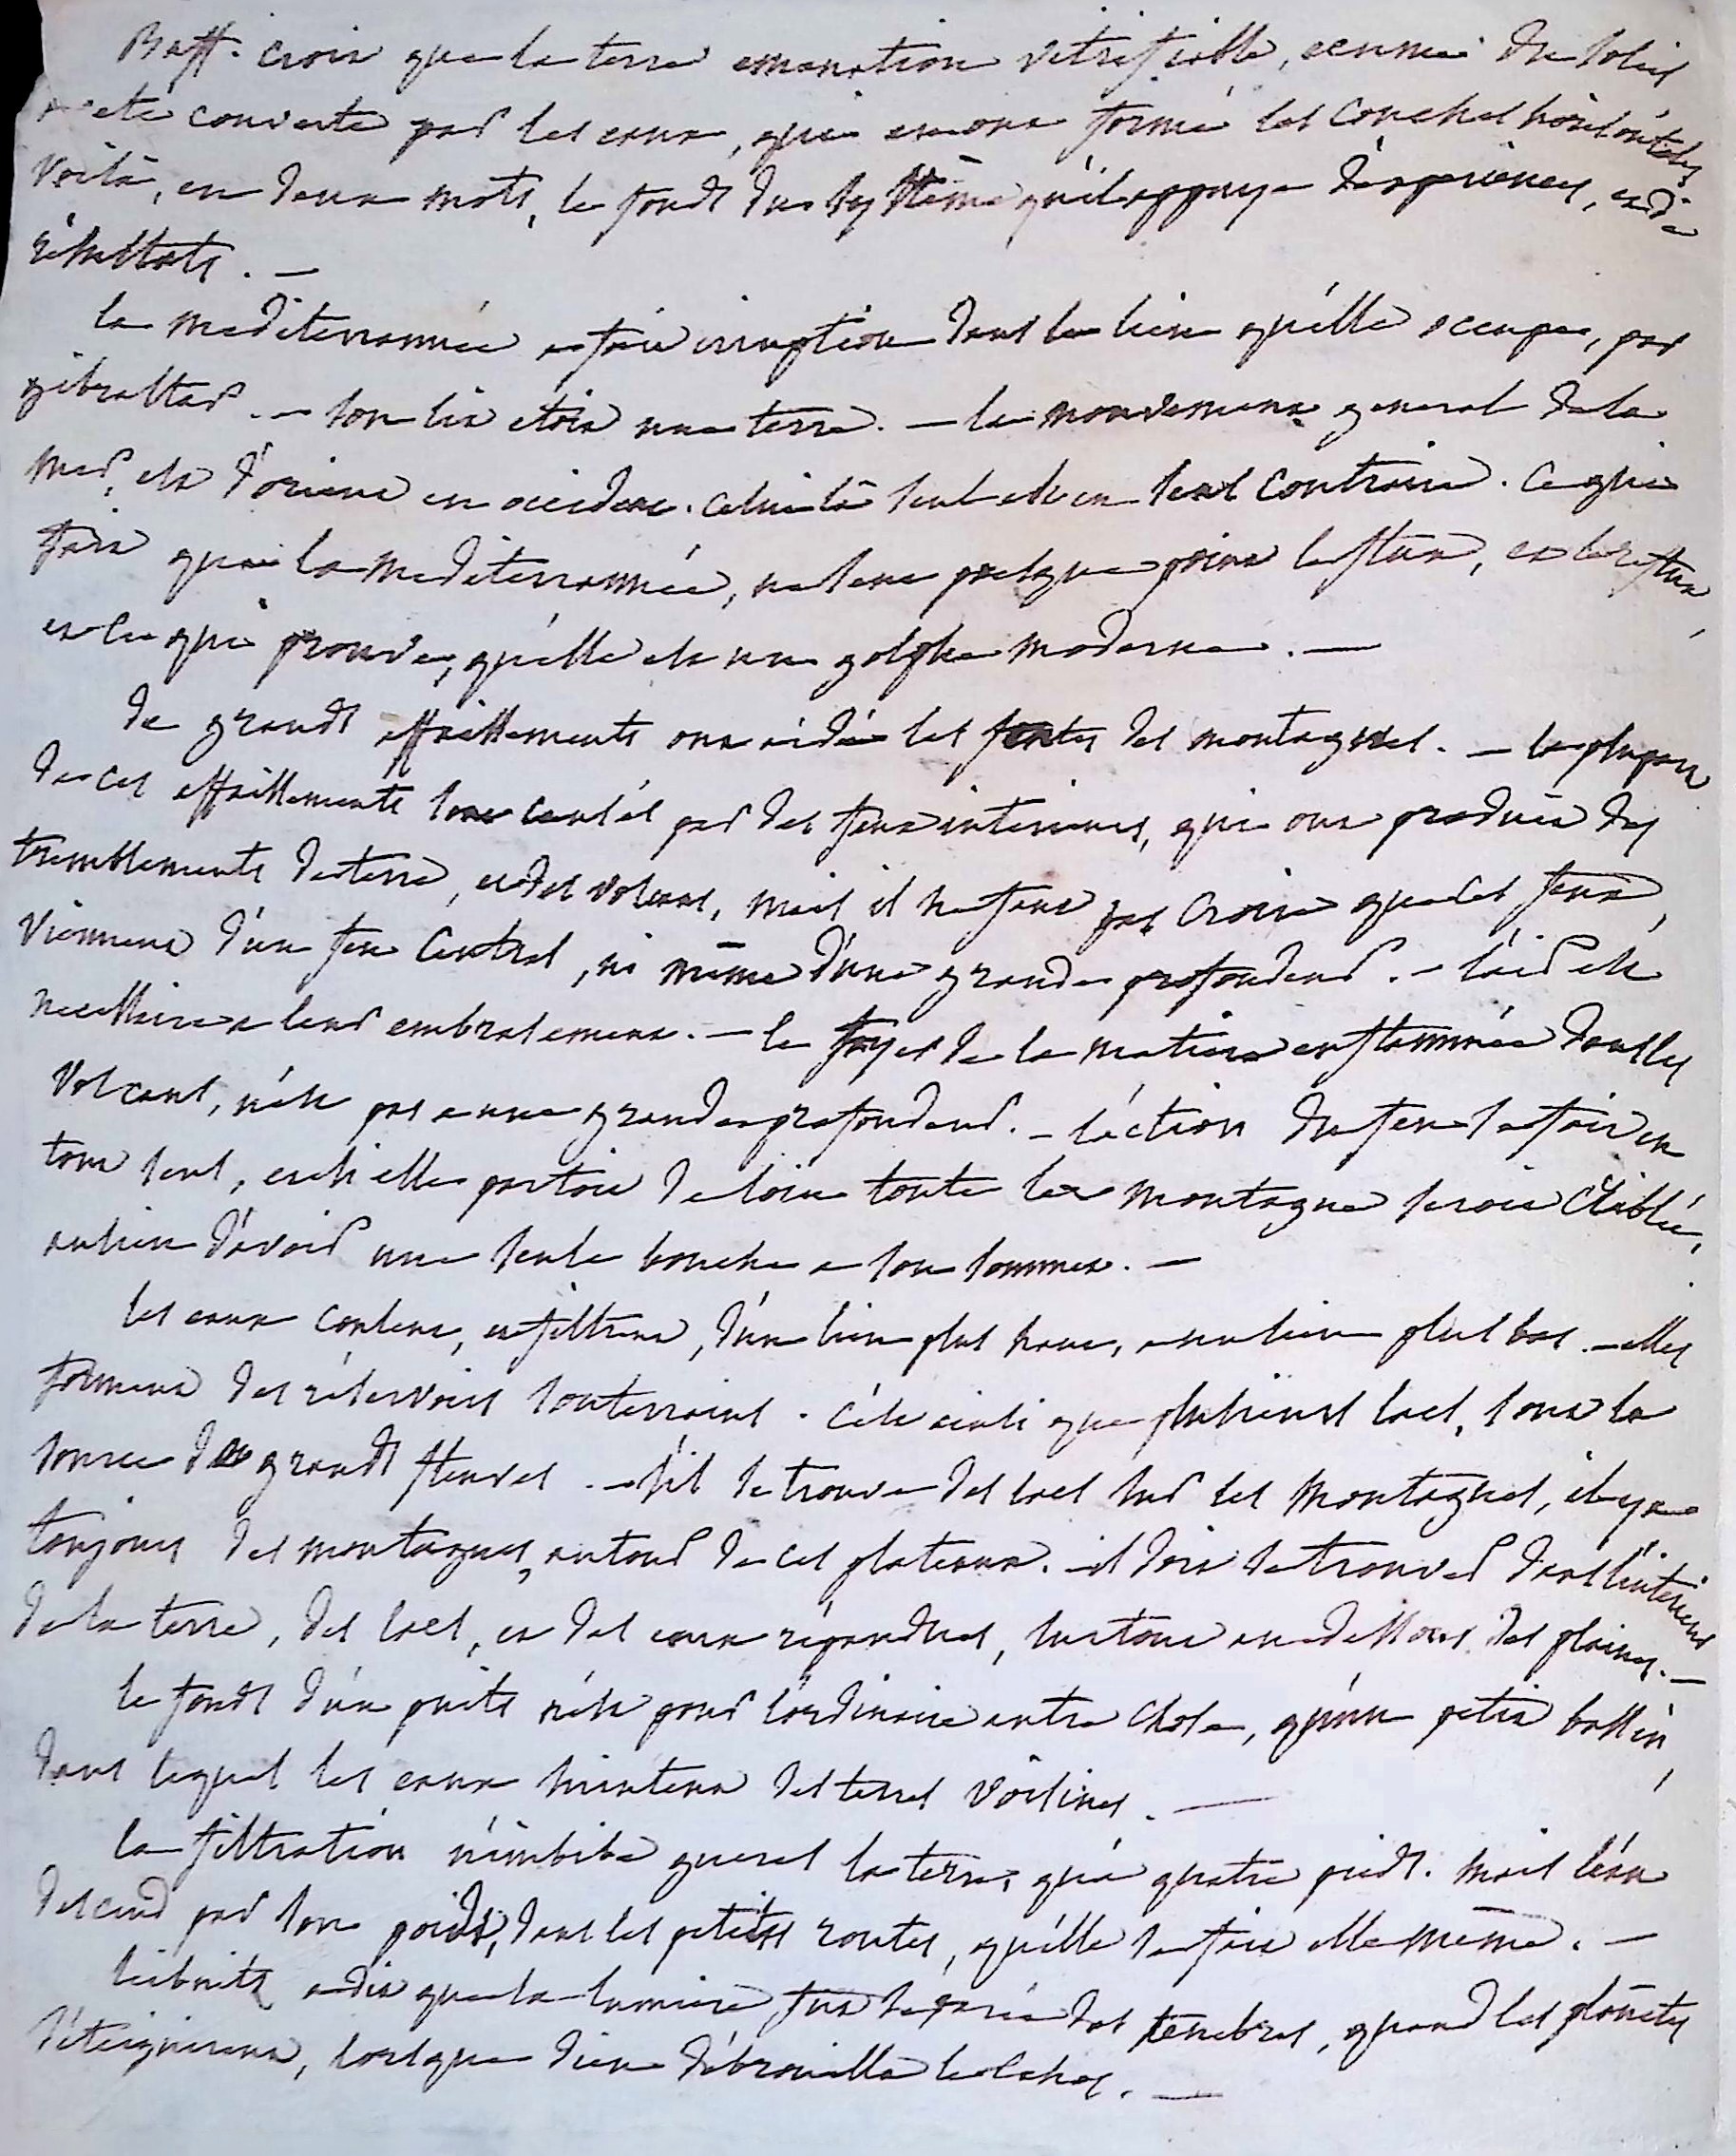 Buff. croit que la terre emanation vitrifiable, ecumée du soleil
a eté couverte par les eaux, qui en ont formé les couches horisontales
voilà, en deux mots, le fonds du systême qu'il appuye d'experiences, et de
résultats. —
la mediterrannée a fait irruption dans le lieu qu'elle occupe, par
gibraltar. — son lit etoit une terre. — le mouvement general de la
mer, est d'orient en occident. celui là seul est en sens contraire. ce qui
fait que la mediterrannée, ne sent presque point le flux, et le reflux,
et ce qui prouve, qu'elle est un golphe moderne. —
de grands affaissements ont aidé les fentes des montagnes. — la plupart
de ces affaissements sont causés par des feux interieurs, qui ont produit des
tremblements de terre, et des volcans, mais il ne faut pas croire que ces feux,
viennent d'un feu central, ni même d'une grande profondeur. — l'air est
necessaire a leur embrasement. — le foyer de la matiere enflammée dans les
volcans, n'est pas a une grande profondeur. — l'action du feu se fait en
tout sens, et si elle partoit de loin toute la montagne seroit criblée,
au lieu d'avoir une seule bouche a son sommet. —
les eaux coulent, et filtrent, d'un lieu plus haut, a un lieu plus bas. — elles
forment des réservoirs souterrains. c'est ainsi que plusieurs lacs, sont la
source des grands fleuves. — s'il se trouve des lacs sur les montagnes, il y a
toujours des montagnes, autour de ces plateaux. il doit se trouver dans l'interieur
de la terre, des lacs, et des eaux répandues, surtout au dessous des plaines. —
le fonds d'un puits n'est pour l'ordinaire autre chose, qu'un petit bassin,
dans lequel les eaux suintent des terres voisines. —
la filtration n'imbibe gueres la terre, qu'a quatre pieds. mais l'eau
descend par son poids, dans les petites routes, qu'elle se fait elle même. —
leibnitz a dit que la lumiere fut separée des tenebres, quand les planetes
s'éteignirent, lorsque dieu débrouilla le cahos. —